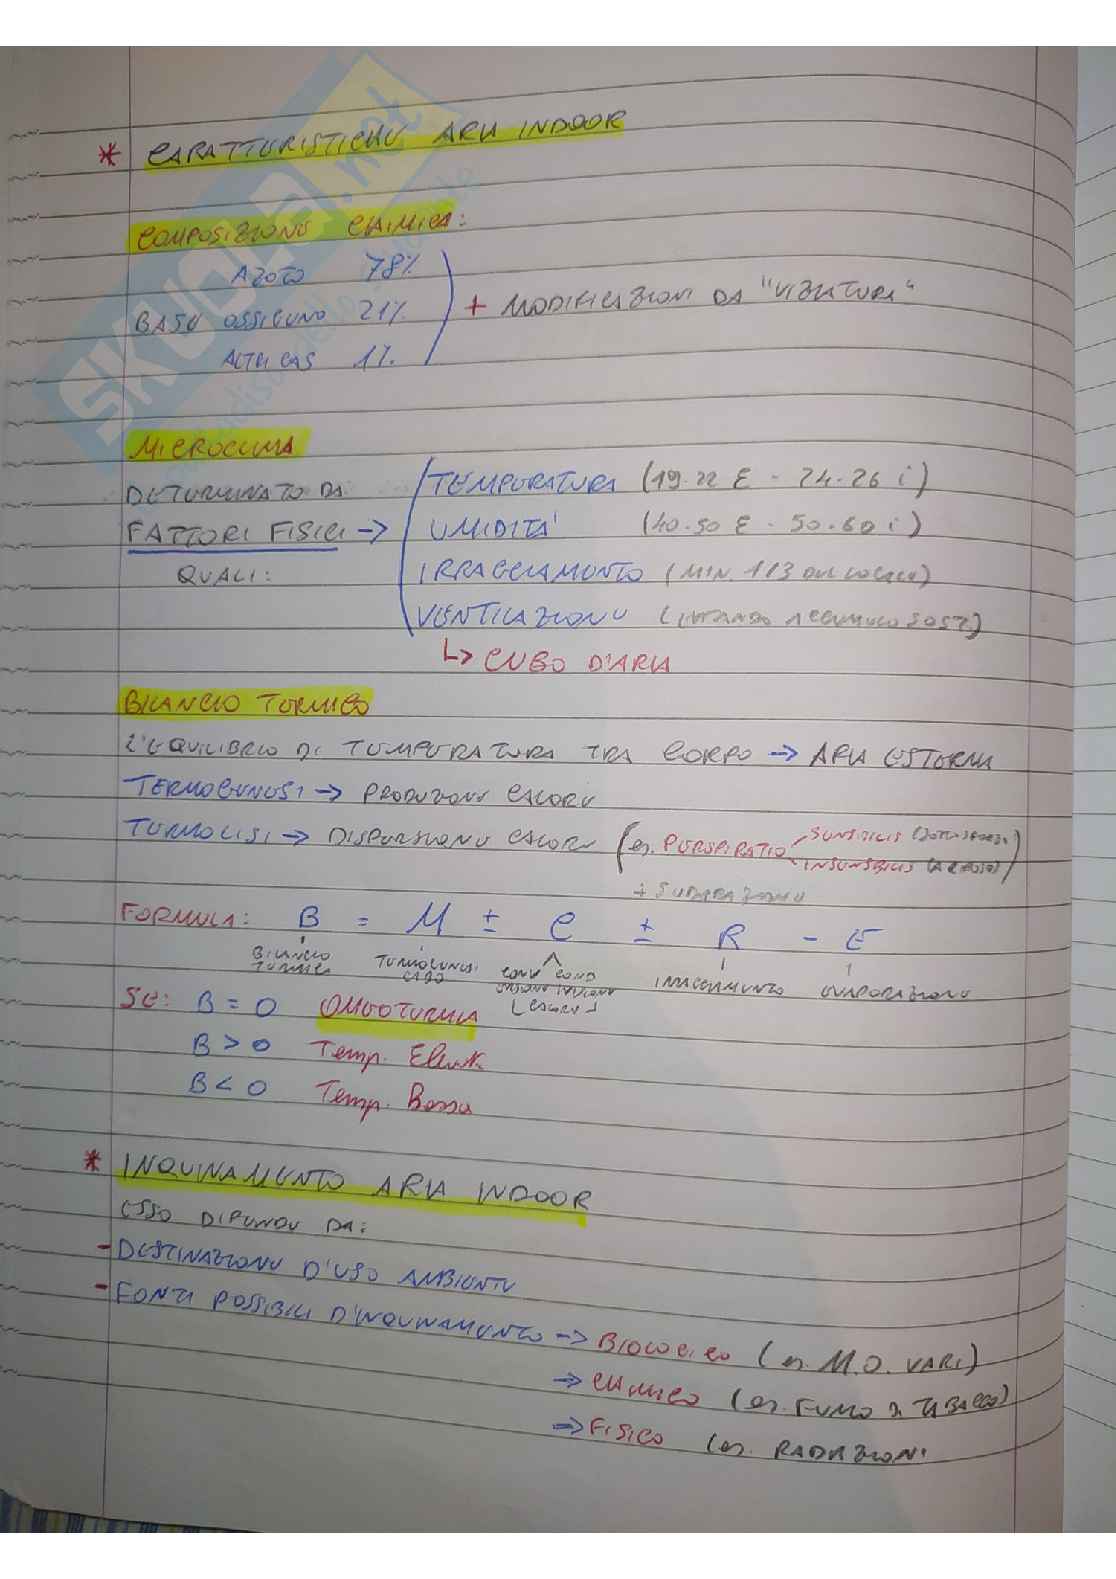 * CARATTERISTICHE ARIA INDOOR
COMPOSIZIONE CHIMICA:
AZOTO 78%
BASE OSSIGENO 21% + MODIFICAZIONI DA "VIZIATURA"
ALTRI GAS 1%
MICROCLIMA
DETERMINATO DA TEMPERATURA (19-22 E - 24-26 i)
FATTORI FISICI → UMIDITÀ (40-50 E - 50-60 i)
QUALI: IRRAGGIAMENTO (MIN. 1/3 DEL LOCALE)
VENTILAZIONE (EVITANDO ACCUMULO SOST)
↳ CUBO D'ARIA
BILANCIO TERMICO
L'EQUILIBRIO DI TEMPERATURA TRA CORPO → ARIA ESTERNA
TERMOGENESI → PRODUZIONE CALORE
TERMOLISI → DISPERSIONE CALORE (es. PERSPIRATIO SENSIBILIS (SOTTO SFORZO)
INSENSIBILIS (A RIPOSO))
+ SUDORAZIONE
FORMULA: B = M ± C ± R - E
BILANCIO TERMICO TERMOGENESI CONV COND IRRAGGIAMENTO EVAPORAZIONE
CALORE
SE: B = 0 OMEOTERMIA
B > 0 Temp. Elevata
B < 0 Temp. Bassa
* INQUINAMENTO ARIA INDOOR
ESSO DIPENDE DA:
- DESTINAZIONE D'USO AMBIENTE
- FONTI POSSIBILI D'INQUINAMENTO → BIOLOGICO (es. M.O. VARI)
→ CHIMICO (es. FUMO DI TABACCO)
→ FISICO (es. RADIAZIONI
SKUOLA.net